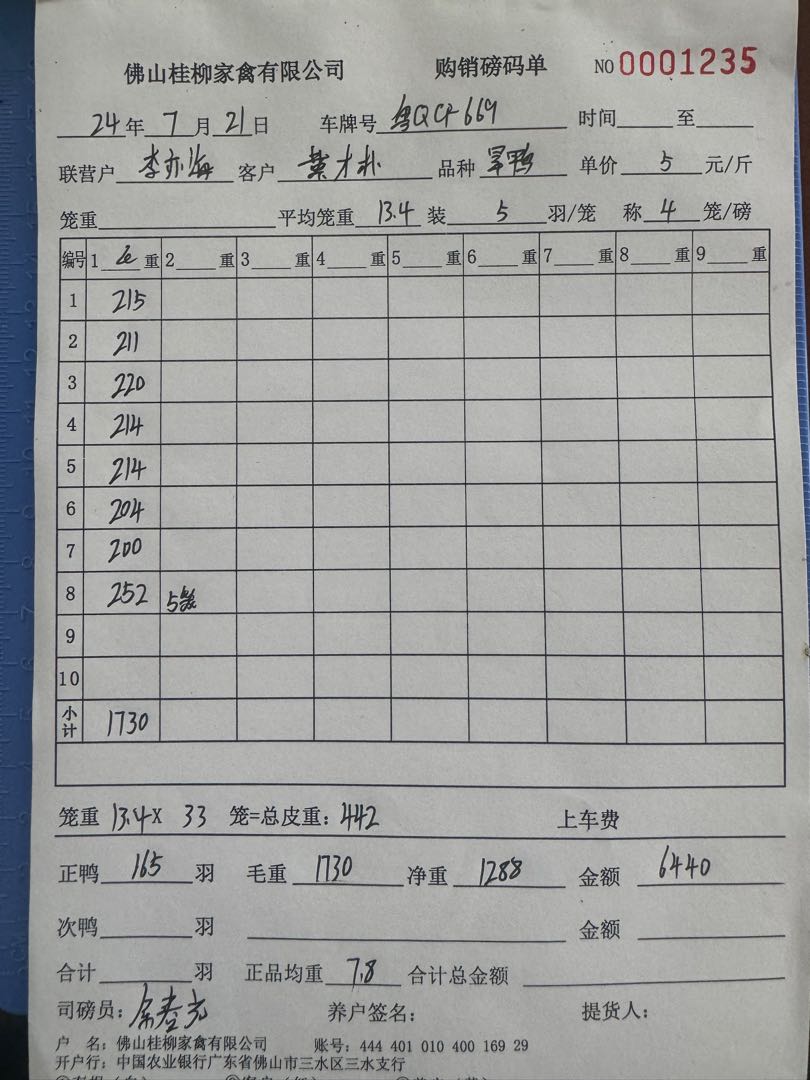 佛山桂柳家禽有限公司 购销磅码单 NO 0001235
24年7月21日 车牌号 粤QCF669 时间 至
联营户 李亦海 客户 叶才朴 品种 旱鸭 单价 5 元/斤
笼重 平均笼重 13.4 装 5 羽/笼 称 4 笼/磅
编号 1 重 2 重 3 重 4 重 5 重 6 重 7 重 8 重 9 重
1 215
2 211
3 220
4 214
5 214
6 204
7 200
8 252 5笼
9
10
小计 1730
笼重 13.4 X 33 笼=总皮重：442 上车费
正鸭 165 羽 毛重 1730 净重 1288 金额 6440
次鸭 羽 金额
合计 羽 正品均重 7.8 合计总金额
司磅员： 养户签名： 提货人：
户 名：佛山桂柳家禽有限公司 账号：444 401 010 400 169 29
开户行：中国农业银行广东省佛山市三水区三水支行